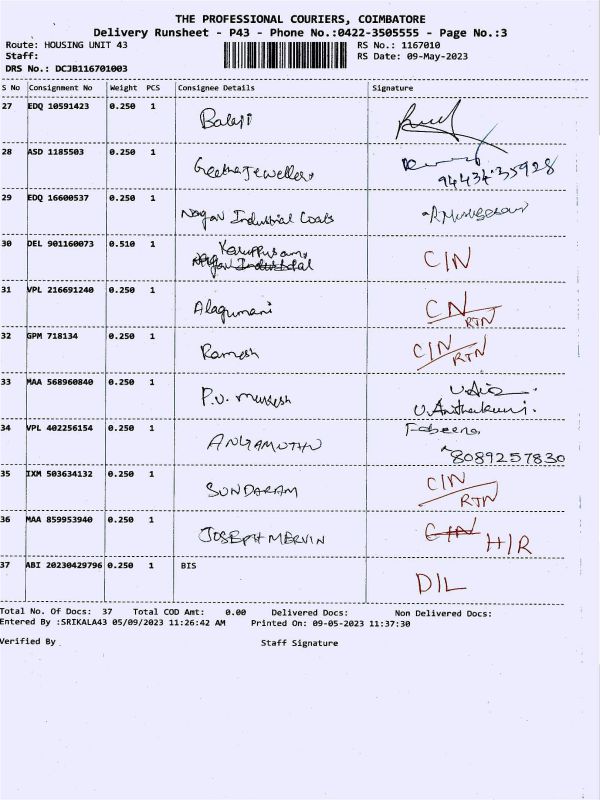 THE PROFESSIONAL COURIERS, COIMBATORE
Delivery Runsheet - P43 - Phone No.:0422-3505555 - Page No.:3
Route: HOUSING UNIT 43 RS No.: 1167010
Staff: RS Date: 09-May-2023
DRS No.: DCJB116701003
S No Consignment No Weight PCS Consignee Details Signature
27 EDQ 10591423 0.250 1 Balaji
28 ASD 1185503 0.250 1 Geetha Jewellers
9443435928
29 EDQ 16600537 0.250 1 Nagav Industrial Coats R Murugesan
30 DEL 901160073 0.510 1 Karuppusamy C/N
31 VPL 216691240 0.250 1 Alagumani CN
RTN
32 GPM 718134 0.250 1 Ramesh C/N
RTN
33 MAA 568960840 0.250 1 P.V.
34 VPL 402256154 0.250 1 ANGAMUTHU Fabeena
8089257830
35 IXM 503634132 0.250 1 SUNDARAM C/N
RTN
36 MAA 859953940 0.250 1 JOSEPH MERVIN C/N H/R
37 ABI 20230429796 0.250 1 BIS D/L
Total No. Of Docs: 37 Total COD Amt: 0.00 Delivered Docs: Non Delivered Docs:
Entered By :SRIKALA43 05/09/2023 11:26:42 AM Printed On: 09-05-2023 11:37:30
Verified By Staff Signature